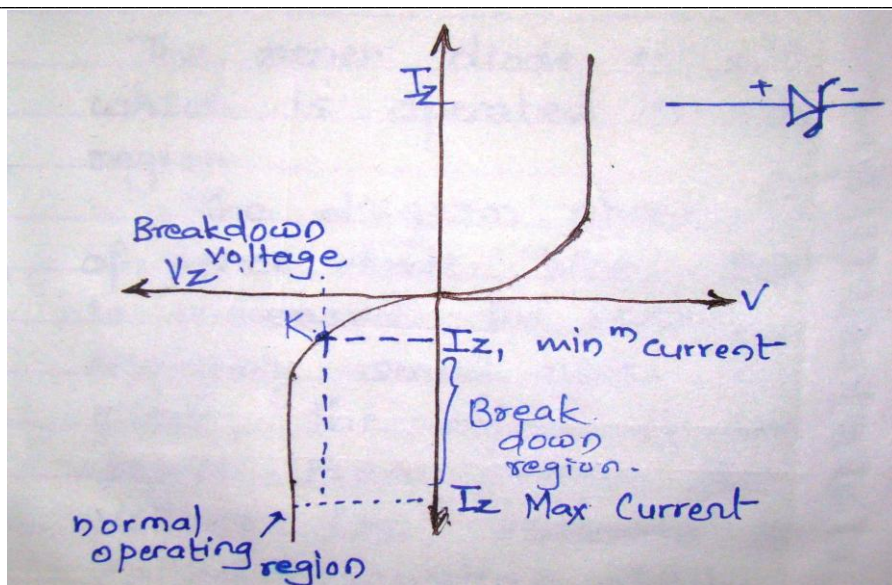 Iz
+ -
Breakdown
voltage
Vz
V
K
Iz, min^m current
Break
down
region.
Iz Max Current
normal
operating
region